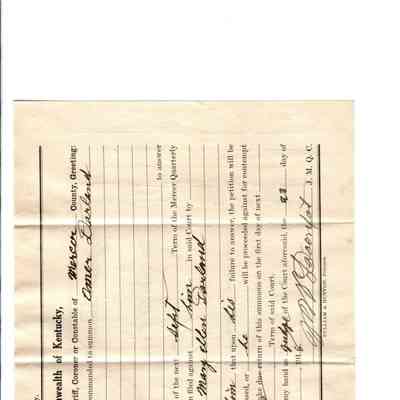 y.
nwealth of Kentucky,
riff, Coroner or Constable of Mercer County, Greeting:
ommanded to summon Omer Darland
to answer
of the next Sept Term of the Mercer Quarterly
n filed against him in said Court by
Mary Ellen Darland
him that upon his failure to answer, the petition will be
ssed, or he will be proceeded against for contempt
ke due return of this summons on the first day of next
Term of said Court.
my hand as judge of the Court aforesaid, the 22 day of
191
J. M. Q. C.
PULLIAM & HUNTON, PRINTERS